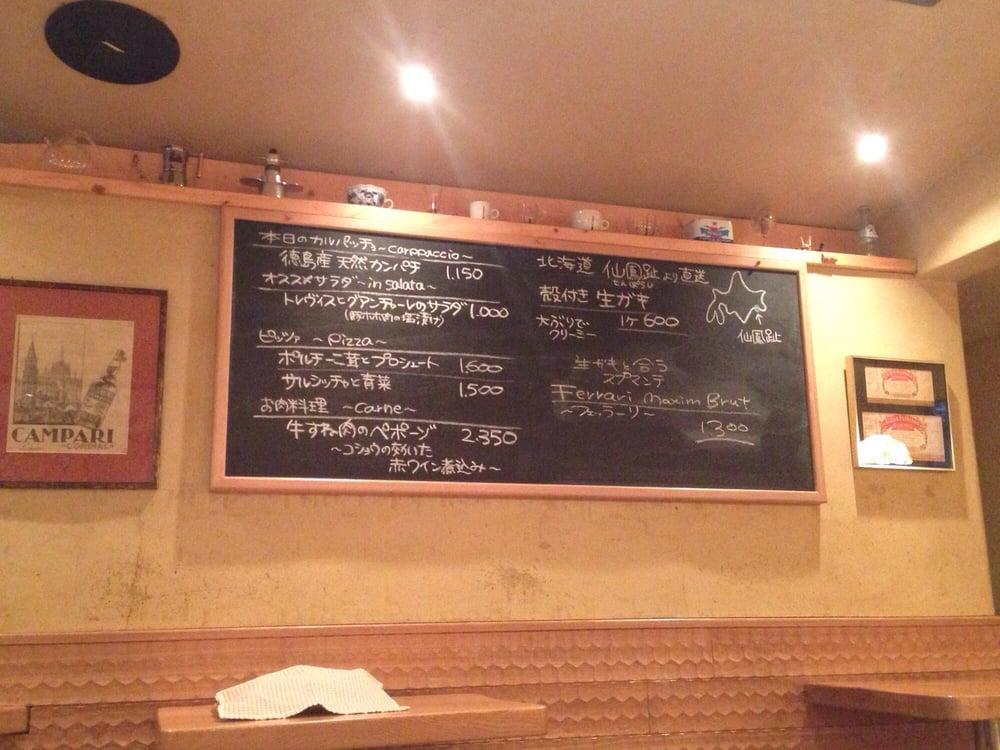 本日のカルパッチョ~carppaccio~
徳島産 天然カンパチ 1.150
オススメサラダ~in salata~
トレヴィスとグアンチャーレのサラダ 1.000
(豚ホホ肉の塩漬け)
ピッツァ ~Pizza~
ポルチーニ茸とプロシュート 1.600
サルシッチャと青菜 1.500
お肉料理 ~carne~
牛すね肉のペポーゾ 2.350
~コショウの効いた
赤ワイン煮込み~
北海道 仙鳳趾より直送
せんぽうし
殻付き 生がき
大ぶりで
クリーミー
1ケ 600
仙鳳趾
生がきと合う
スプマンテ
Ferrari Maxim Brut
~フェッラーリ~
1300
CAMPARI
CORDIAL